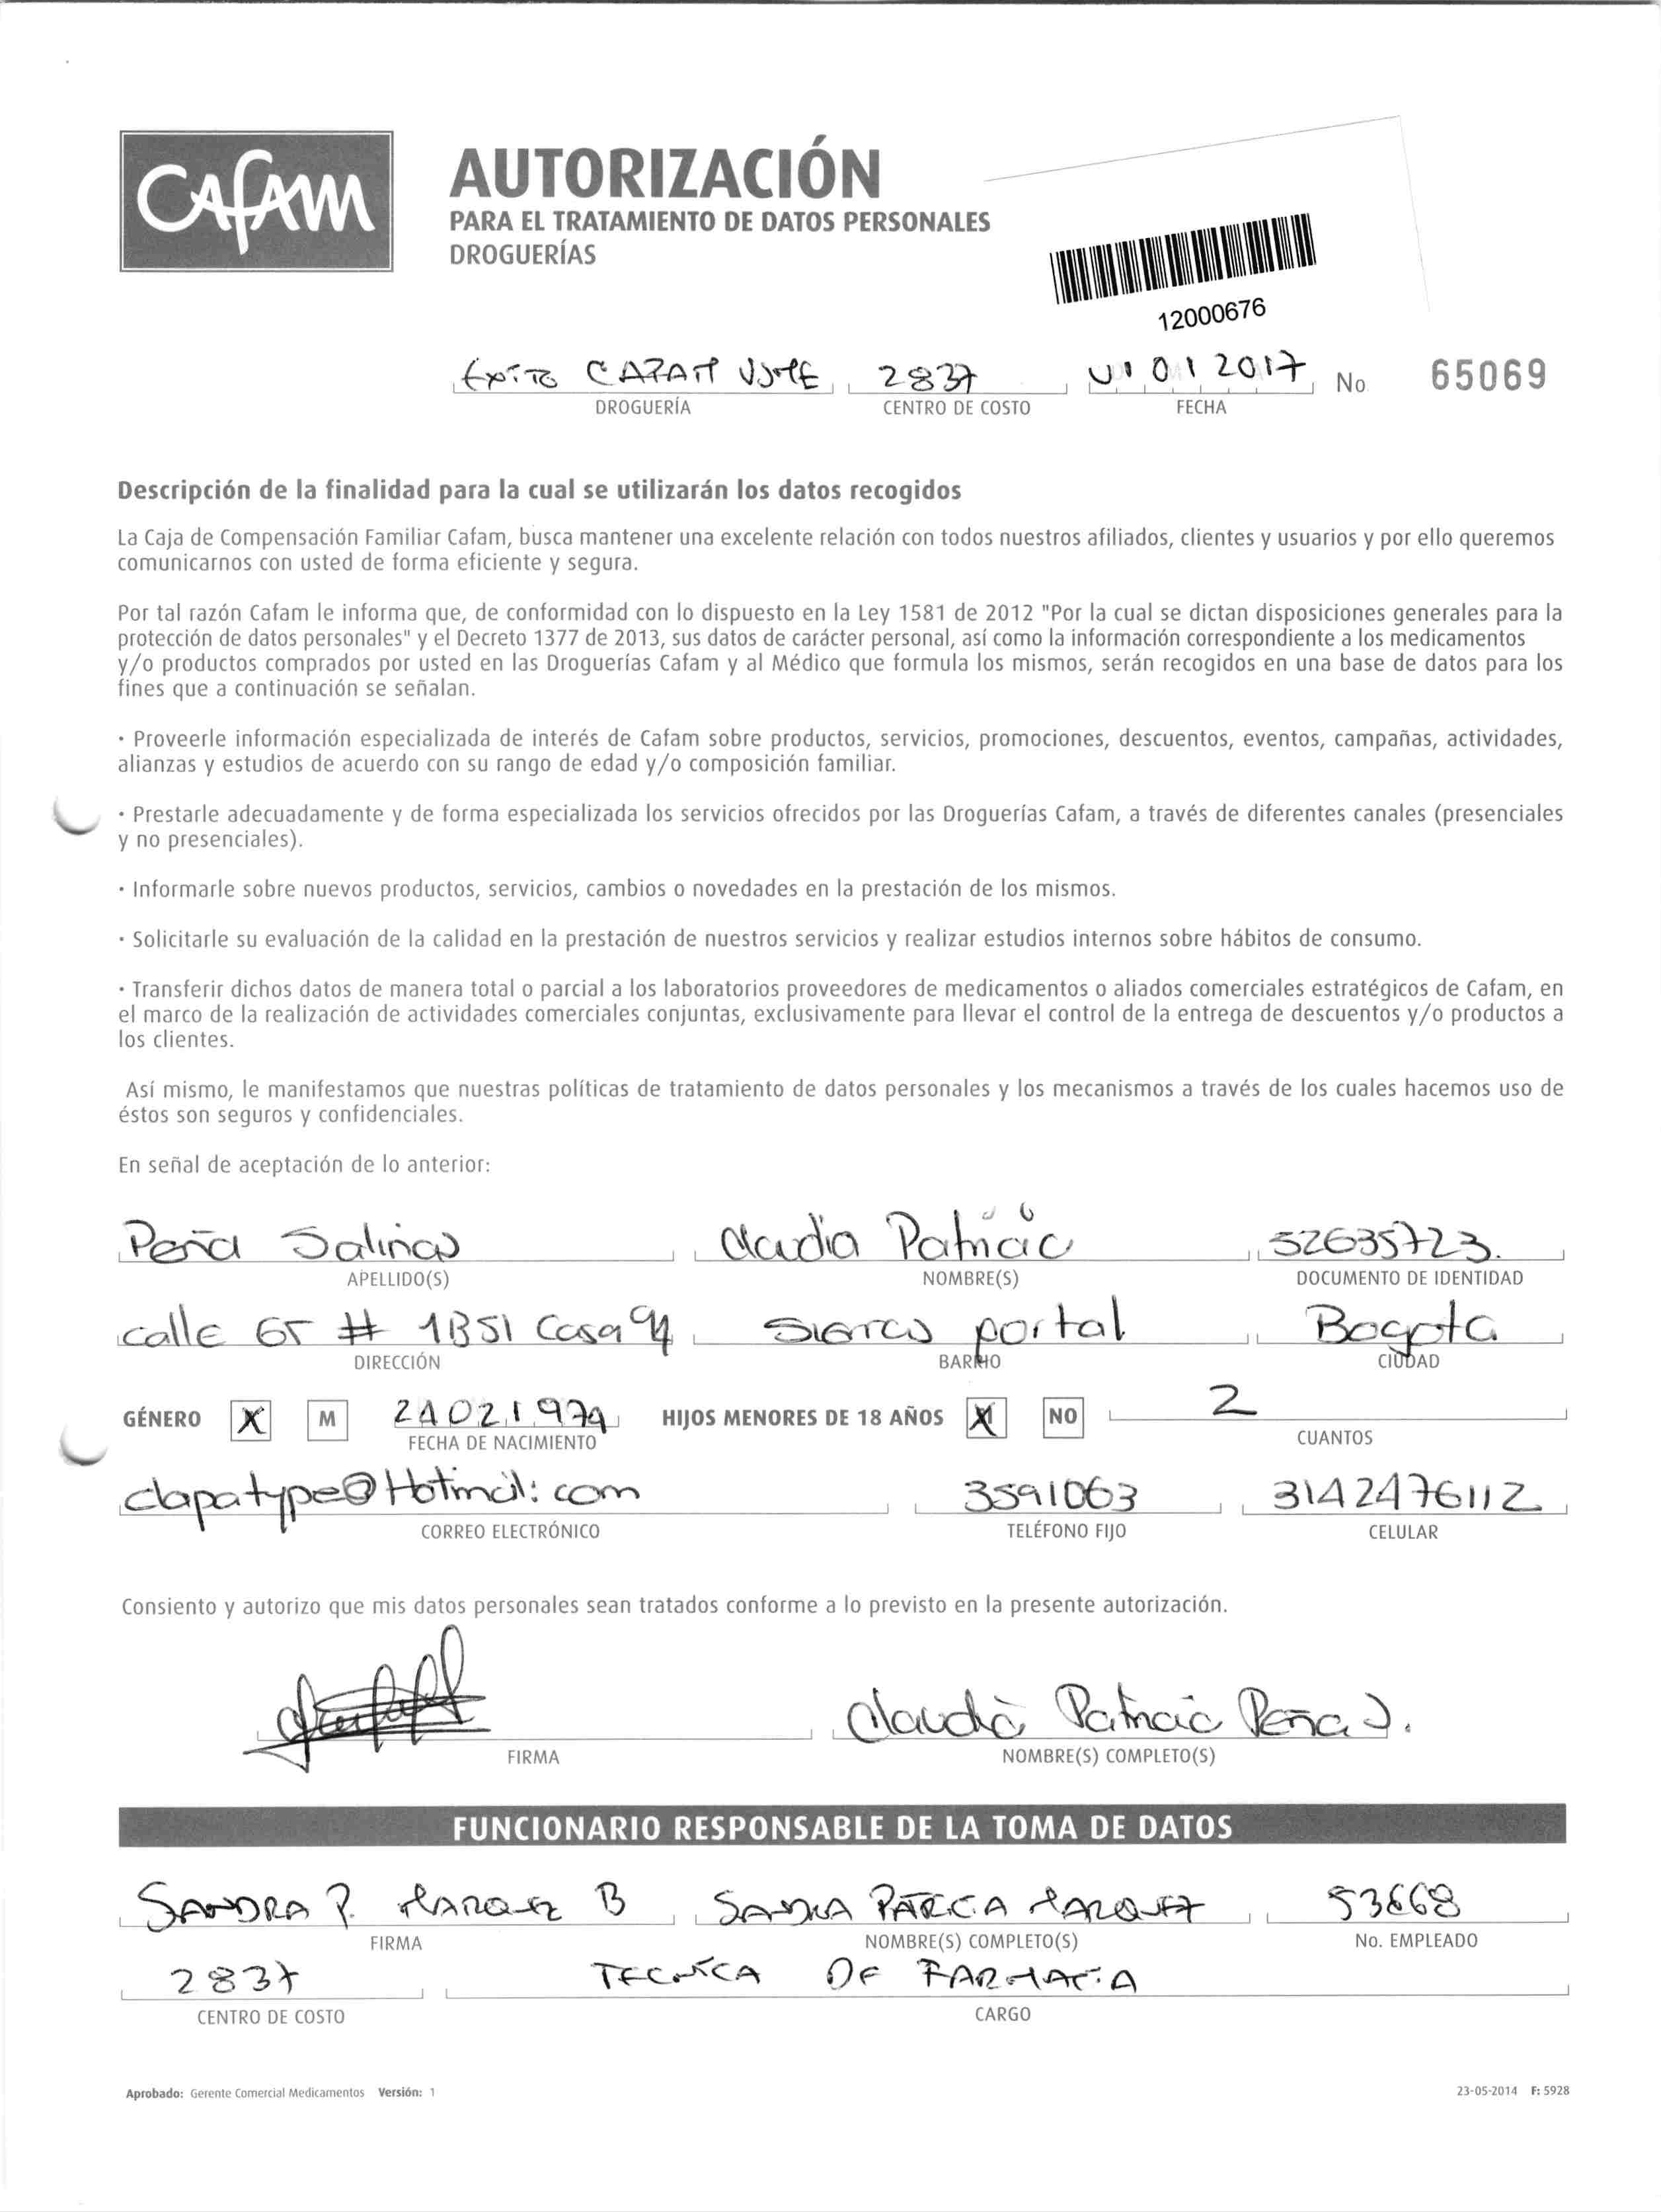 Cafam
AUTORIZACIÓN
PARA EL TRATAMIENTO DE DATOS PERSONALES
DROGUERÍAS
12000676
Exito CAFAM 2837 01 2017 No 65069
DROGUERÍA CENTRO DE COSTO FECHA
Descripción de la finalidad para la cual se utilizarán los datos recogidos
La Caja de Compensación Familiar Cafam, busca mantener una excelente relación con todos nuestros afiliados, clientes y usuarios y por ello queremos
comunicarnos con usted de forma eficiente y segura.
Por tal razón Cafam le informa que, de conformidad con lo dispuesto en la Ley 1581 de 2012 "Por la cual se dictan disposiciones generales para la
protección de datos personales" y el Decreto 1377 de 2013, sus datos de carácter personal, así como la información correspondiente a los medicamentos
y/o productos comprados por usted en las Droguerías Cafam y al Médico que formula los mismos, serán recogidos en una base de datos para los
fines que a continuación se señalan.
· Proveerle información especializada de interés de Cafam sobre productos, servicios, promociones, descuentos, eventos, campañas, actividades,
alianzas y estudios de acuerdo con su rango de edad y/o composición familiar.
· Prestarle adecuadamente y de forma especializada los servicios ofrecidos por las Droguerías Cafam, a través de diferentes canales (presenciales
y no presenciales).
· Informarle sobre nuevos productos, servicios, cambios o novedades en la prestación de los mismos.
· Solicitarle su evaluación de la calidad en la prestación de nuestros servicios y realizar estudios internos sobre hábitos de consumo.
· Transferir dichos datos de manera total o parcial a los laboratorios proveedores de medicamentos o aliados comerciales estratégicos de Cafam, en
el marco de la realización de actividades comerciales conjuntas, exclusivamente para llevar el control de la entrega de descuentos y/o productos a
los clientes.
Así mismo, le manifestamos que nuestras políticas de tratamiento de datos personales y los mecanismos a través de los cuales hacemos uso de
éstos son seguros y confidenciales.
En señal de aceptación de lo anterior:
Peña Salinas Claudia Patricia 52635723.
APELLIDO(S) NOMBRE(S) DOCUMENTO DE IDENTIDAD
calle 65 # 1B51 Casa 94 Sierras portal Bogota
DIRECCIÓN BARRIO CIUDAD
GÉNERO X M 24021974 HIJOS MENORES DE 18 AÑOS X NO 2
FECHA DE NACIMIENTO CUANTOS
clapatype@Hotmail.com 3591063 3142476112
CORREO ELECTRÓNICO TELÉFONO FIJO CELULAR
Consiento y autorizo que mis datos personales sean tratados conforme a lo previsto en la presente autorización.
Claudia Patricia Peña S.
FIRMA NOMBRE(S) COMPLETO(S)
FUNCIONARIO RESPONSABLE DE LA TOMA DE DATOS
SANDRA P. MARQUEZ B SANDRA PATRICIA MARQUEZ 53668
FIRMA NOMBRE(S) COMPLETO(S) No. EMPLEADO
2837 TECNICA DE FARMACIA
CENTRO DE COSTO CARGO
Aprobado: Gerente Comercial Medicamentos Versión: 1 23-05-2014 F: 5928